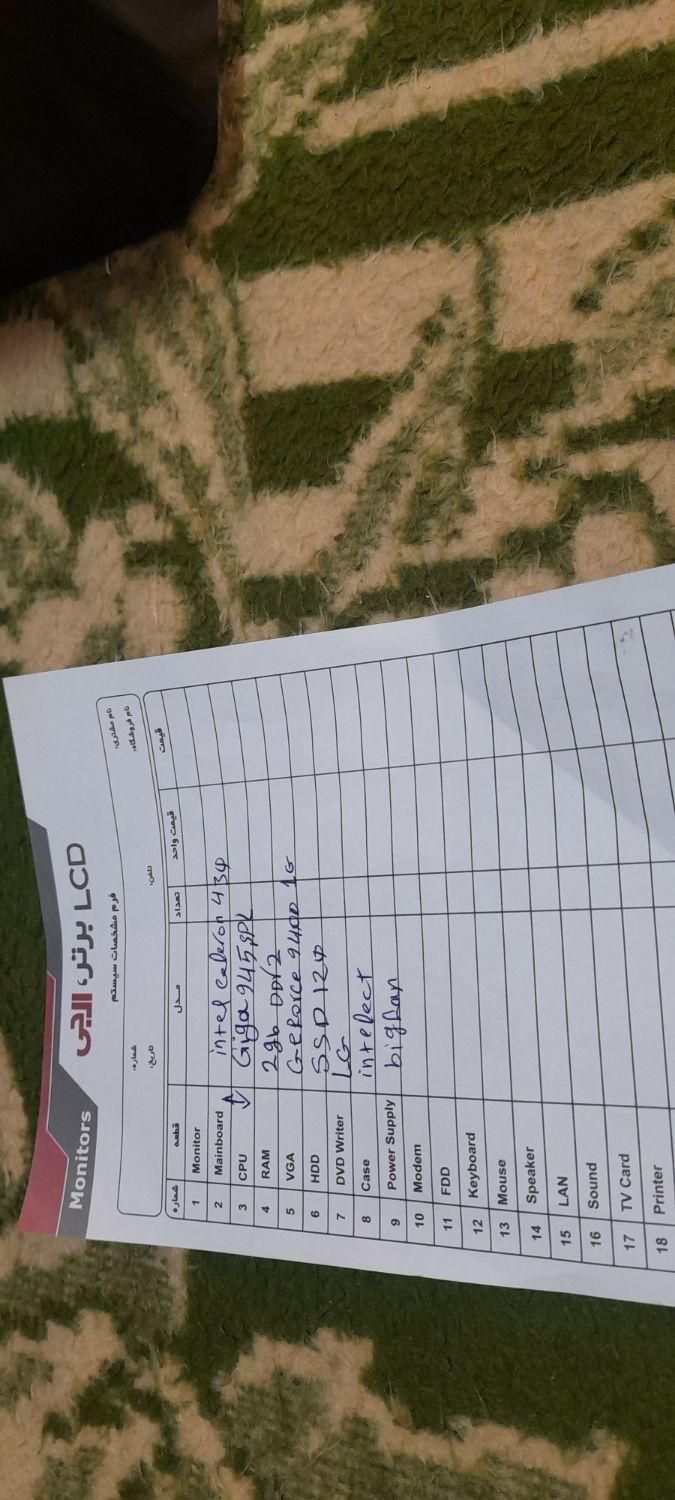 Monitors
برتر، الجی LCD
فرم مشخصات سیستم
نام مشتری:
شماره:
نام فروشگاه:
تلفن:
تاریخ:
شماره قطعه مـدل تعداد قیمت واحد قیمت
1 Monitor
2 Mainboard intel celeron 430
3 CPU Giga 945 GPL
4 RAM 2gb DDR2
5 VGA GeForce 9400 1G
6 HDD SSD 120
7 DVD Writer LG
8 Case intelect
9 Power Supply bigfan
10 Modem
11 FDD
12 Keyboard
13 Mouse
14 Speaker
15 LAN
16 Sound
17 TV Card
18 Printer